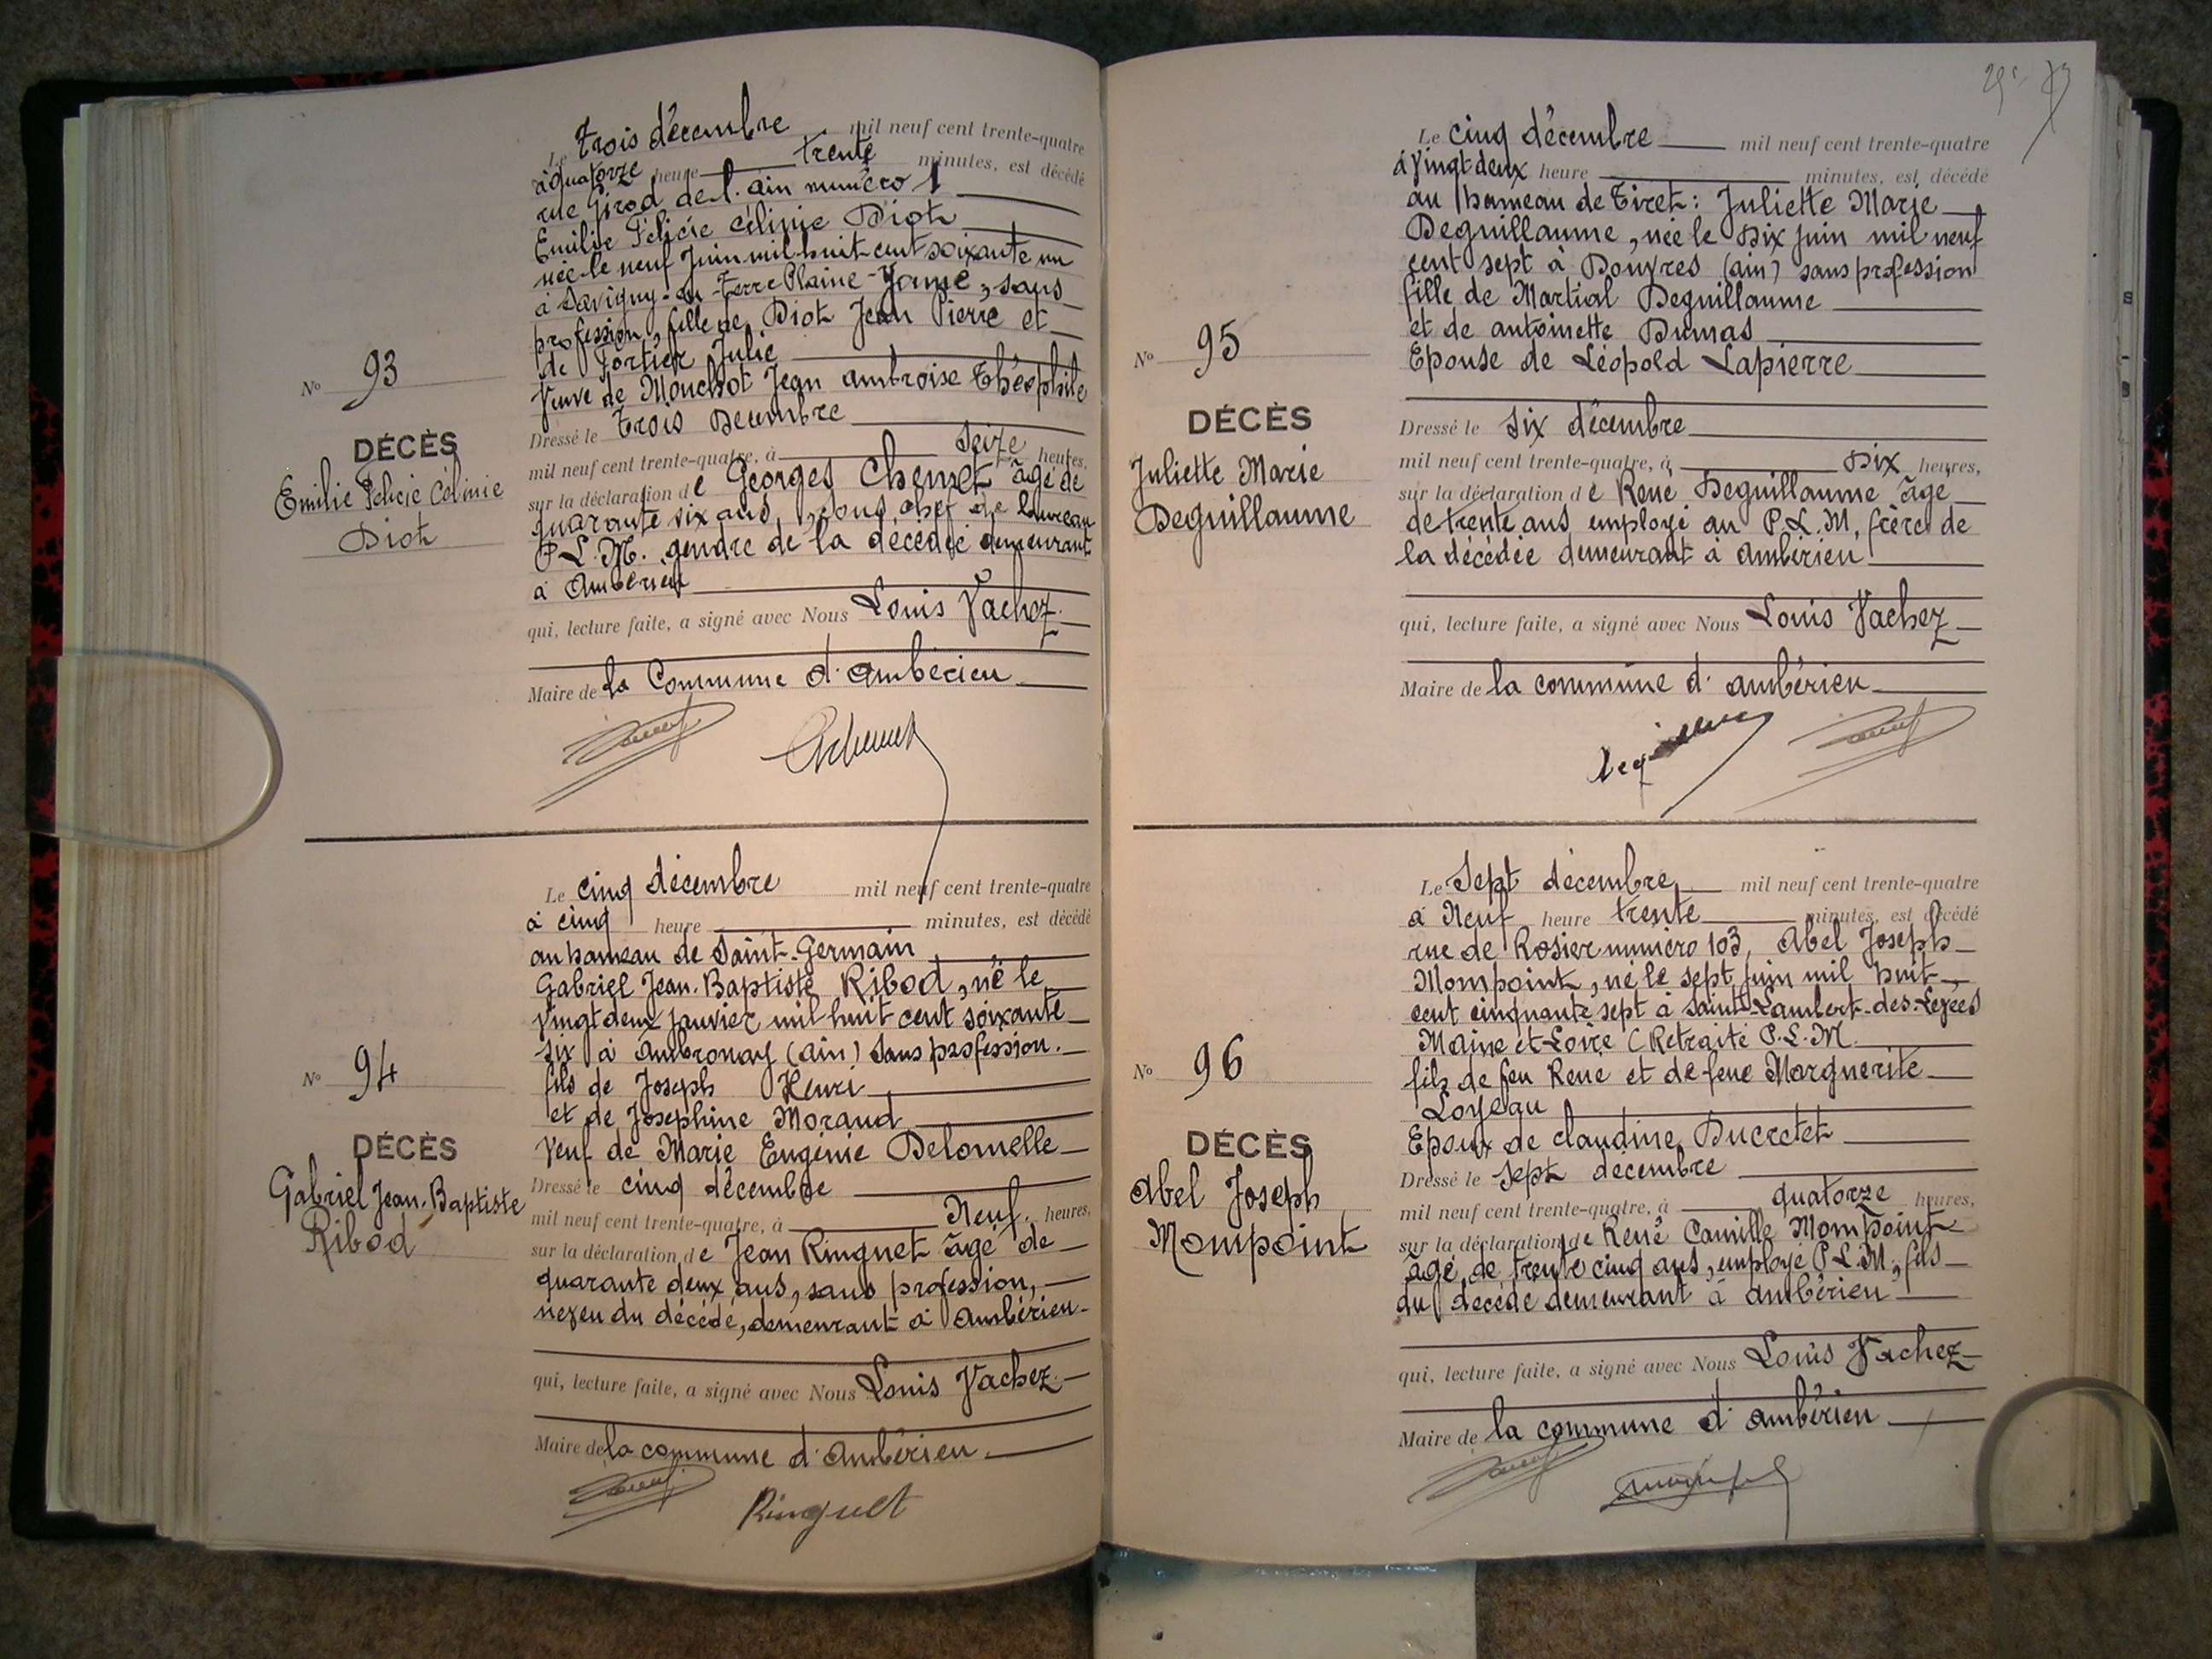 Le trois décembre mil neuf cent trente-quatre
à quatorze heure trente minutes, est décédé
rue Girod de l'ain numéro 1
Emilie Félicie Célinie Diot
née le neuf Juin mil huit cent soixante un
à Savigny-en-Terre Plaine-Yonne, sans
profession, fille de Diot Jean Pierre et
de Portier Julie
Veuve de Mouchot Jean ambroise Théophile
N° 93
DÉCÈS
Emilie Félicie Célinie
Diot
Dressé le trois Décembre
mil neuf cent trente-quatre, à Seize heures,
sur la déclaration de Georges Chenut âgé de
quarante six ans, sous chef de bureau
P.L.M. gendre de la décédée demeurant
à Ambérieu
qui, lecture faite, a signé avec Nous Louis Vachez
Maire de la Commune d'ambérieu
Le cinq décembre mil neuf cent trente-quatre
à cinq heure minutes, est décédé
au hameau de Saint-Germain
Gabriel Jean-Baptiste Ribod, né le
vingt deux janvier mil huit cent soixante
six à Ambronay (ain) sans profession.
fils de Joseph Henri
et de Josephine Morand
Veuf de Marie Eugénie Delomelle
N° 94
DÉCÈS
Gabriel Jean-Baptiste
Ribod
Dressé le cinq décembre
mil neuf cent trente-quatre, à Neuf heures,
sur la déclaration de Jean Ringuet âgé de
quarante deux ans, sans profession,
neveu du décédé, demeurant à Ambérieu
qui, lecture faite, a signé avec Nous Louis Vachez
Maire de la commune d'Ambérieu
Ringuet
Le cinq décembre mil neuf cent trente-quatre
à Vingt deux heure minutes, est décédé
au hameau de Tiret: Juliette Marie
Deguillaume, née le Dix juin mil neuf
cent sept à Douvres (ain) sans profession
fille de Martial Deguillaume
et de antoinette Dumas
Epouse de Léopold Lapierre
N° 95
DÉCÈS
Juliette Marie
Deguillaume
Dressé le six décembre
mil neuf cent trente-quatre, à Dix heures,
sur la déclaration de René Deguillaume âgé
de trente ans employé au P.L.M, frère de
la décédée demeurant à Ambérieu
qui, lecture faite, a signé avec Nous Louis Vachez
Maire de la commune d'ambérieu
Le Sept décembre mil neuf cent trente-quatre
à Neuf heure trente minutes, est décédé
rue de Rosier numéro 103, Abel Joseph
Mompoint, né le sept juin mil huit
cent cinquante sept à Saint-Lambert-des-Levées
Maine et Loire (Retraité P.L.M.
fils de feu René et de feue Marguerite
Loyeau
Epoux de Claudine Ducretet
N° 96
DÉCÈS
Abel Joseph
Mompoint
Dressé le Sept décembre
mil neuf cent trente-quatre, à quatorze heures,
sur la déclaration de René Camille Mompoint
âgé de trente cinq ans, employé P.L.M, fils
du décédé demeurant à ambérieu
qui, lecture faite, a signé avec Nous Louis Vachez
Maire de la commune d'ambérieu